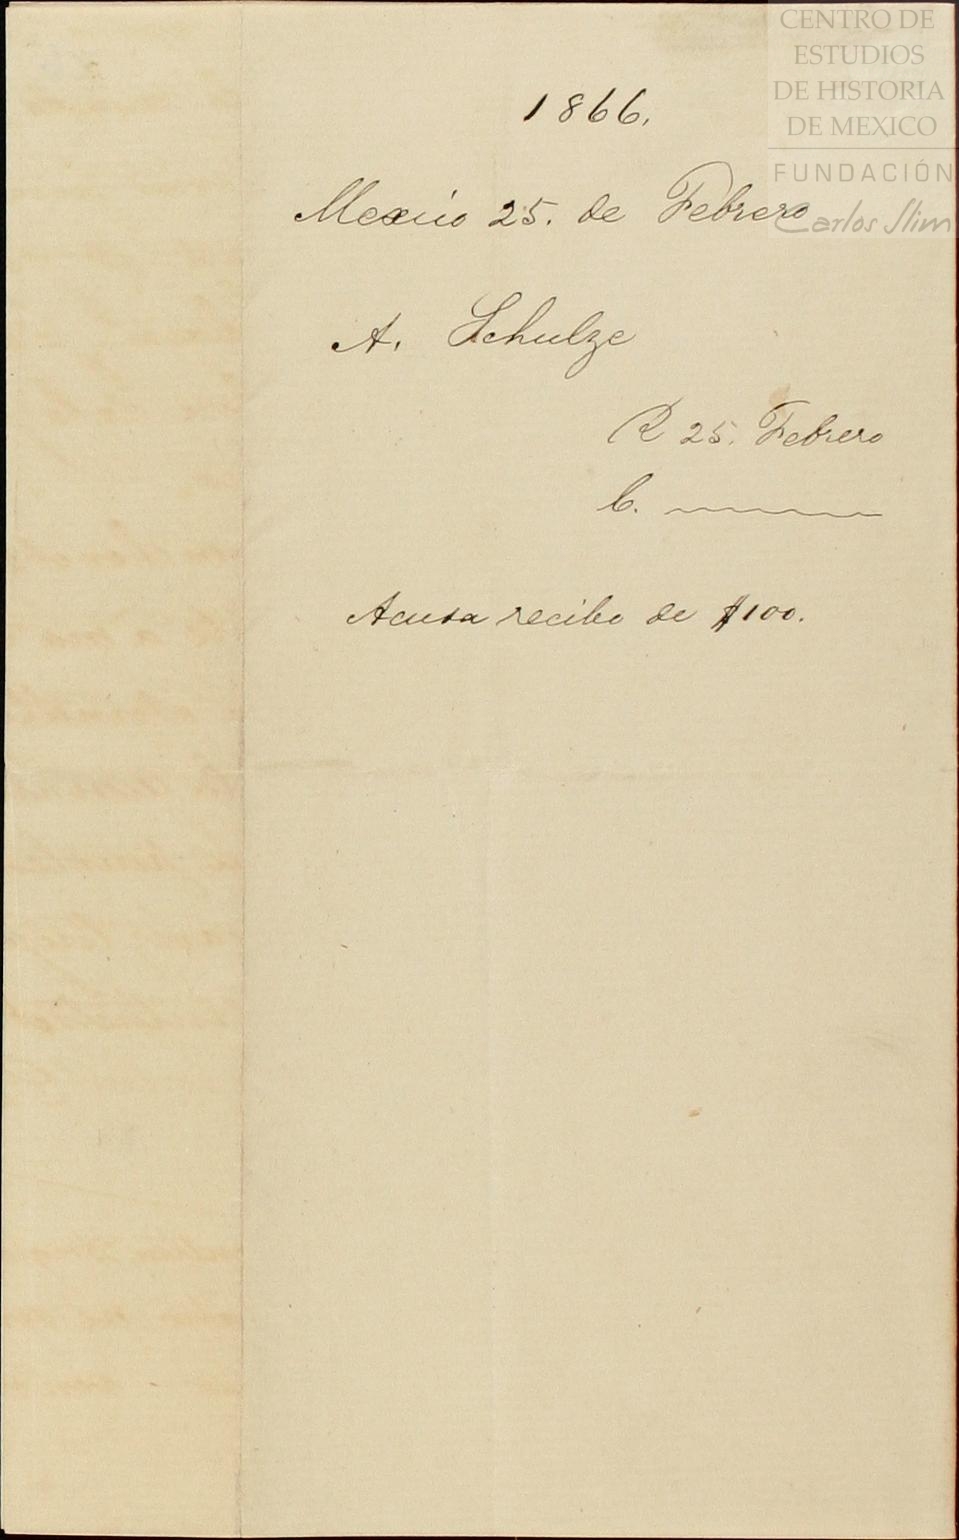 CENTRO DE
ESTUDIOS
DE HISTORIA
DE MEXICO
FUNDACIÓN
Carlos Slim
1866.
Mexico 25. de Febrero
A. Schulze
R 25. Febrero
C.
Acusa recibo de $100.